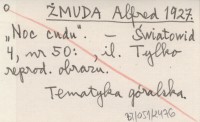 o ŻMUDA Alfred 1927.
„Noc cudu". — Światowid
4, nr 50: , il. Tylko
reprod. obrazu.
Tematyka góralska.